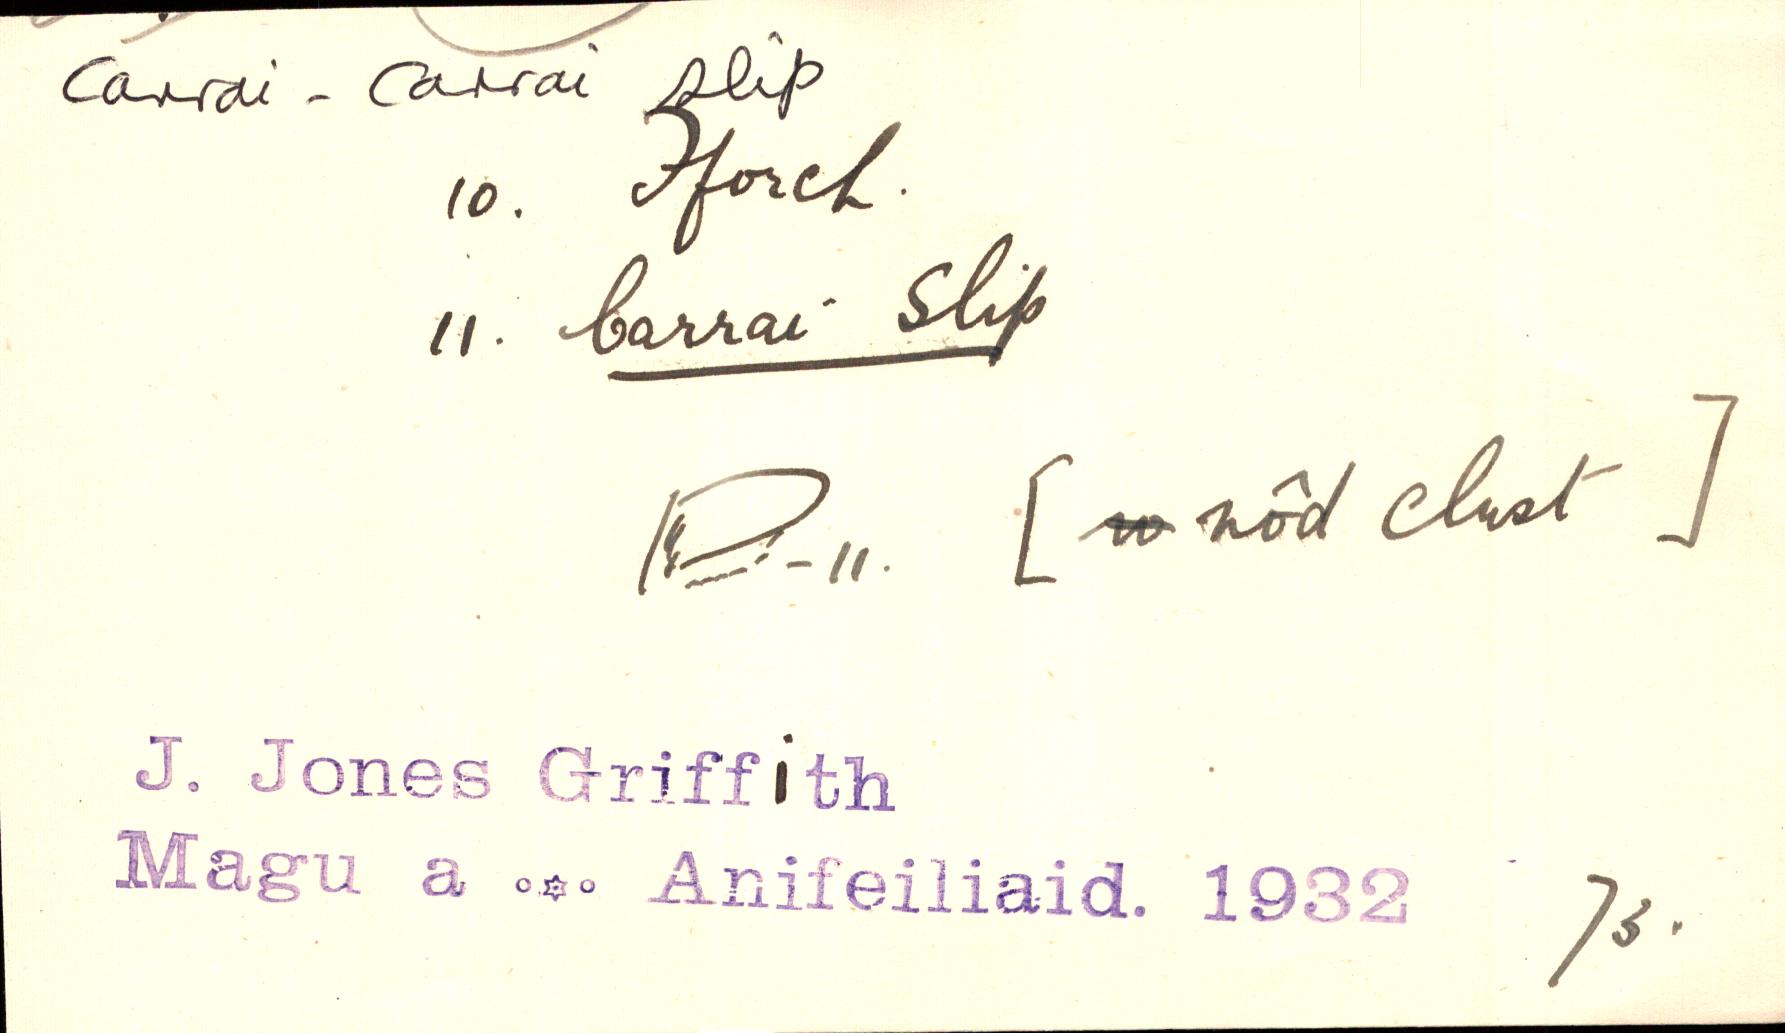 carrai - carrai slip
10. Fforch.
11. Carrai Slip
- 11. [ nôd clust ]
J. Jones Griffith
Magu a ... Anifeiliaid. 1932
73.